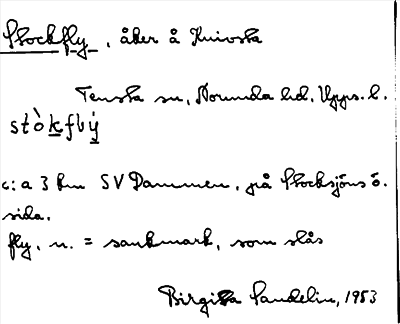 Stockfly, åker å Knivsta
Tensta sn, Norunda hd, Upps. l.
stòkflý
c:a 3 km SV Dammen, på Stocksjöns ö.
sida.
fly, n. = sankmark, som slås
Birgitta Sandelin, 1953